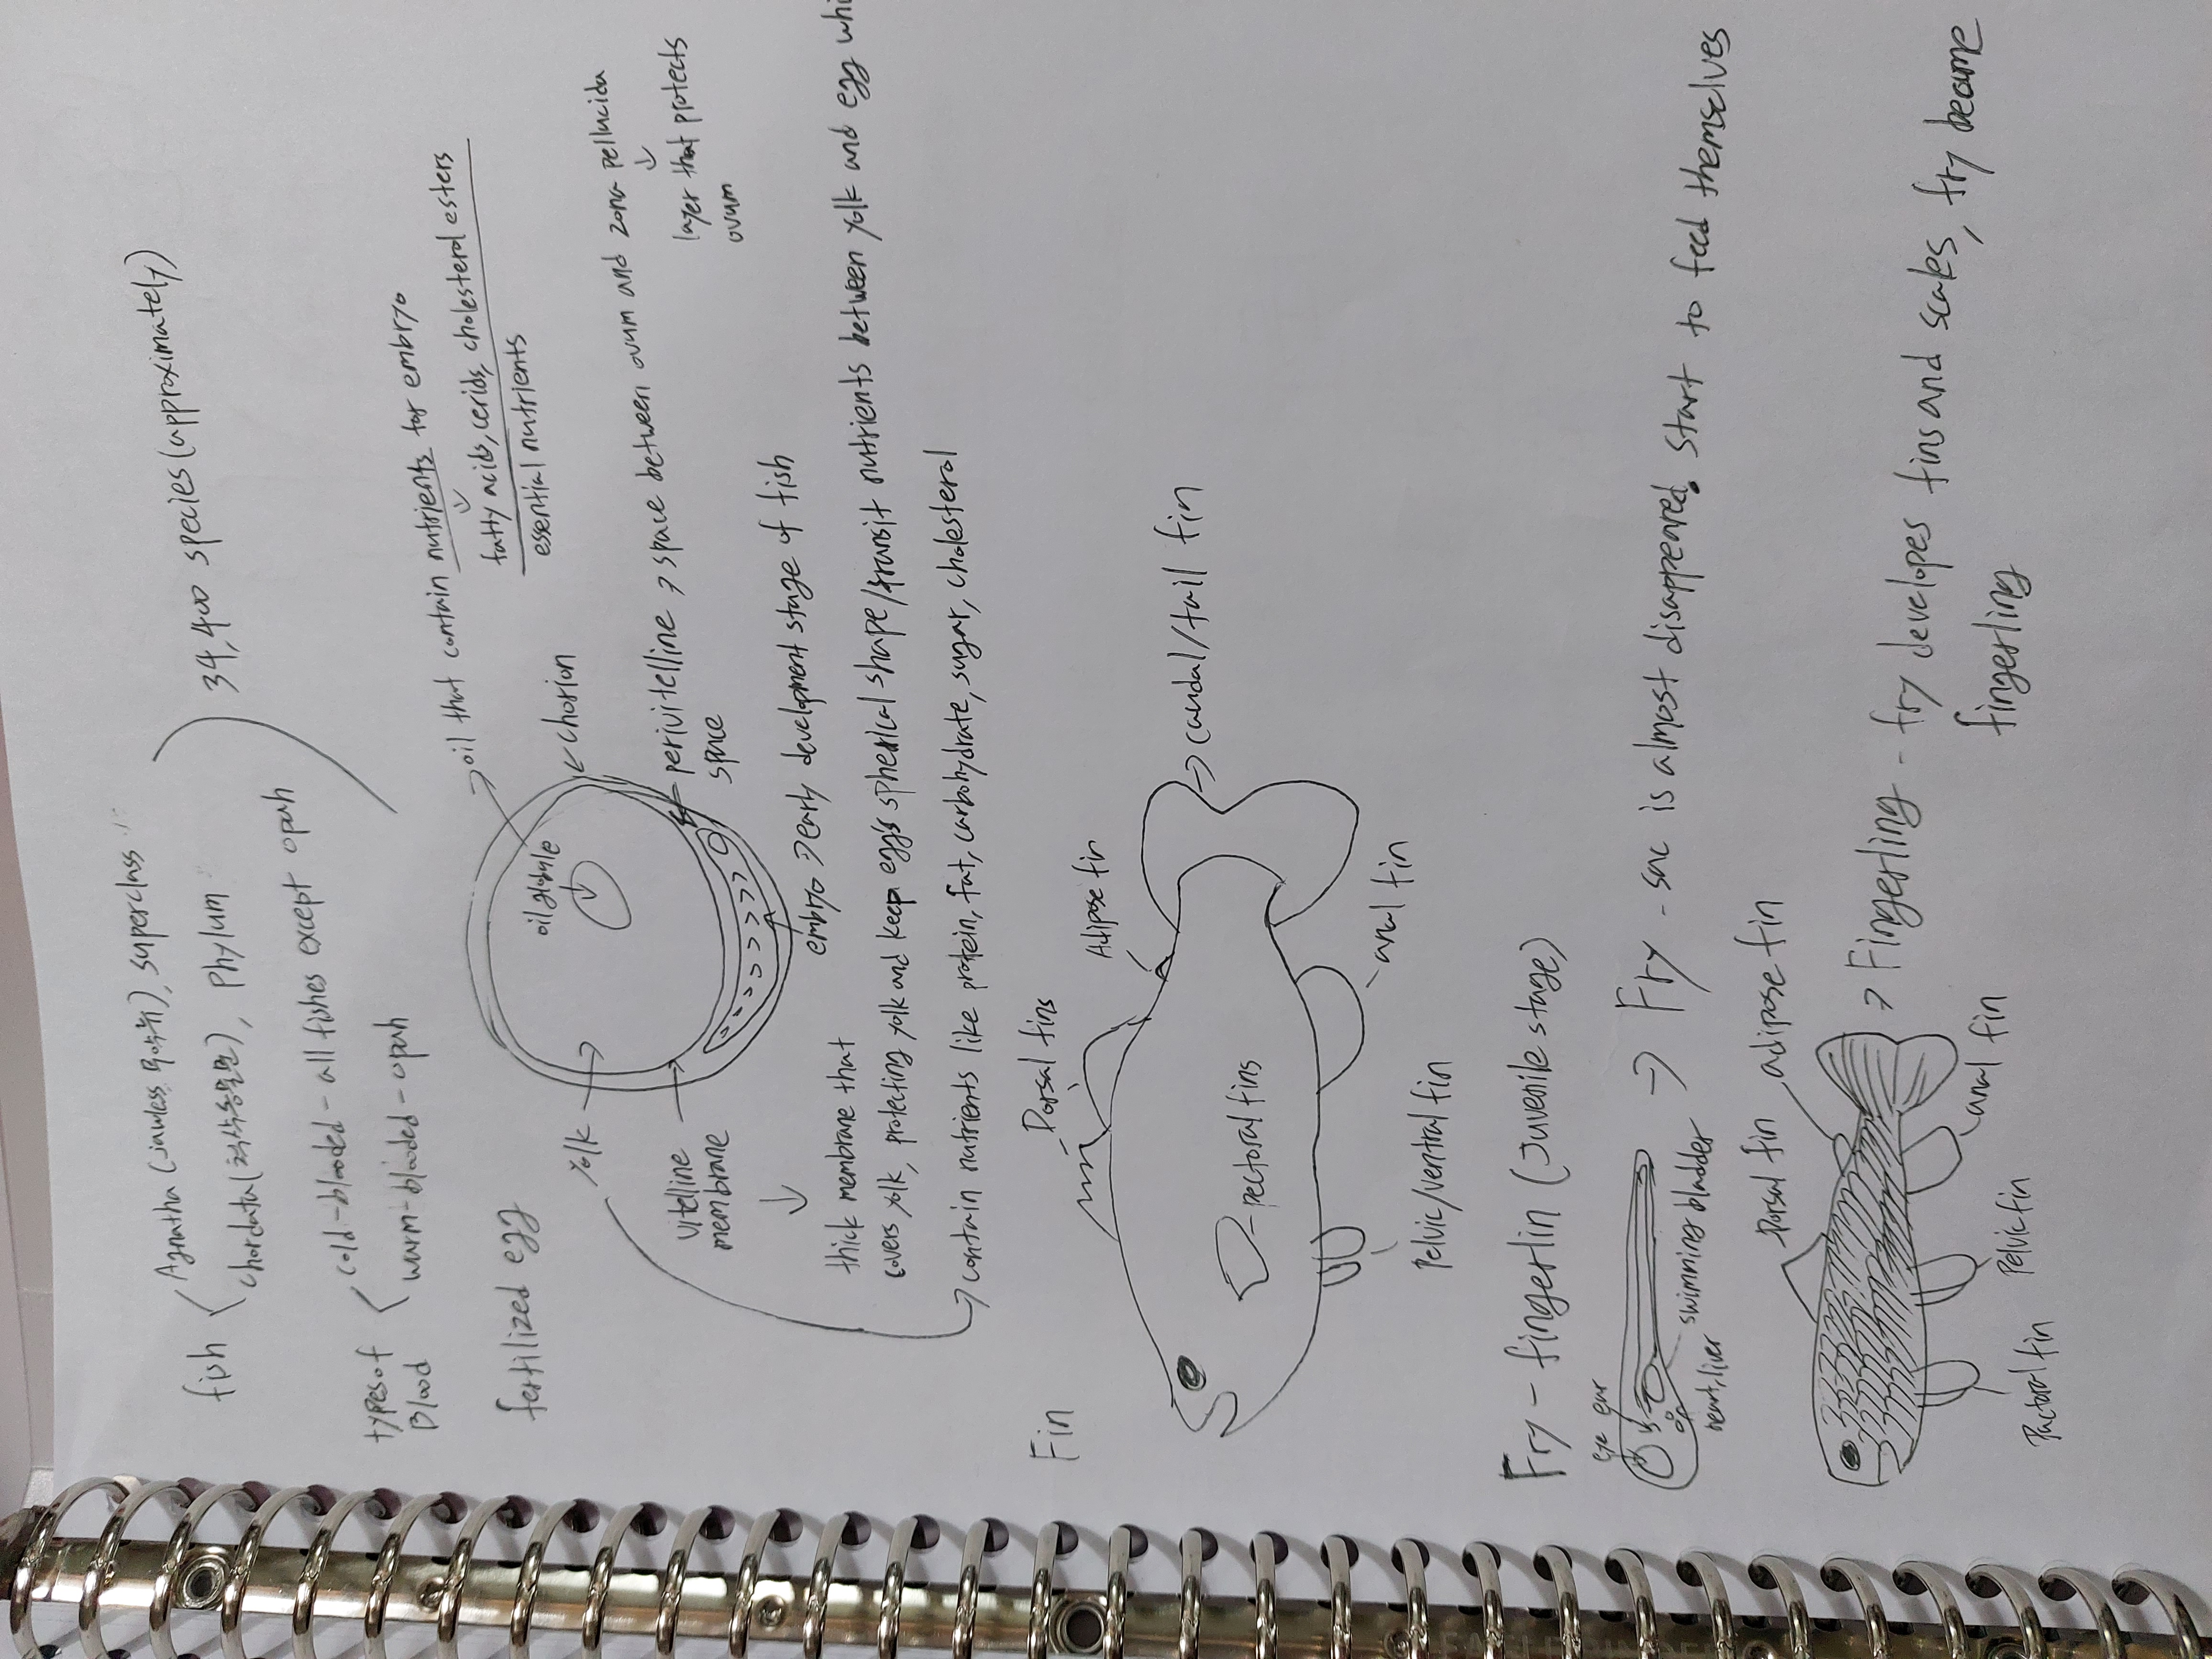 Agnatha (jawless, 무악류), superclass
fish
chordata(척삭동물문), Phylum
34,400 species (approximately)
types of
Blood
cold-blooded - all fishes except opah
warm-blooded - opah
fertilized egg
oil that contain nutrients for embryo
fatty acids, cerids, cholesterol esters
essential nutrients
oil globule
chorion
yolk
perivitelline → space between ovum and zona pellucida
space
layer that protects
ovum
vitelline
membrane
embryo → early development stage of fish
thick membrane that
covers yolk, protecting yolk and keep egg's spherical shape/transit nutrients between yolk and egg
→ contain nutrients like protein, fat, carbohydrate, sugar, cholesterol
Fin
Dorsal fins
Adipose fin
→ caudal/tail fin
pectoral fins
Pelvic/ventral fin
anal fin
Fry - fingerlin (Juvenile stage)
eye ear
→ Fry - sac is almost disappeared. start to feed themselves
swimming bladder
heart, liver
Dorsal fin
adipose fin
→ Fingerling - fry developes fins and scales, fry become
fingerling
Pactoral fin
Pelvic fin
anal fin